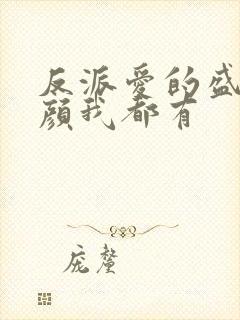 反派爱的盛
颜我都有
庞馨